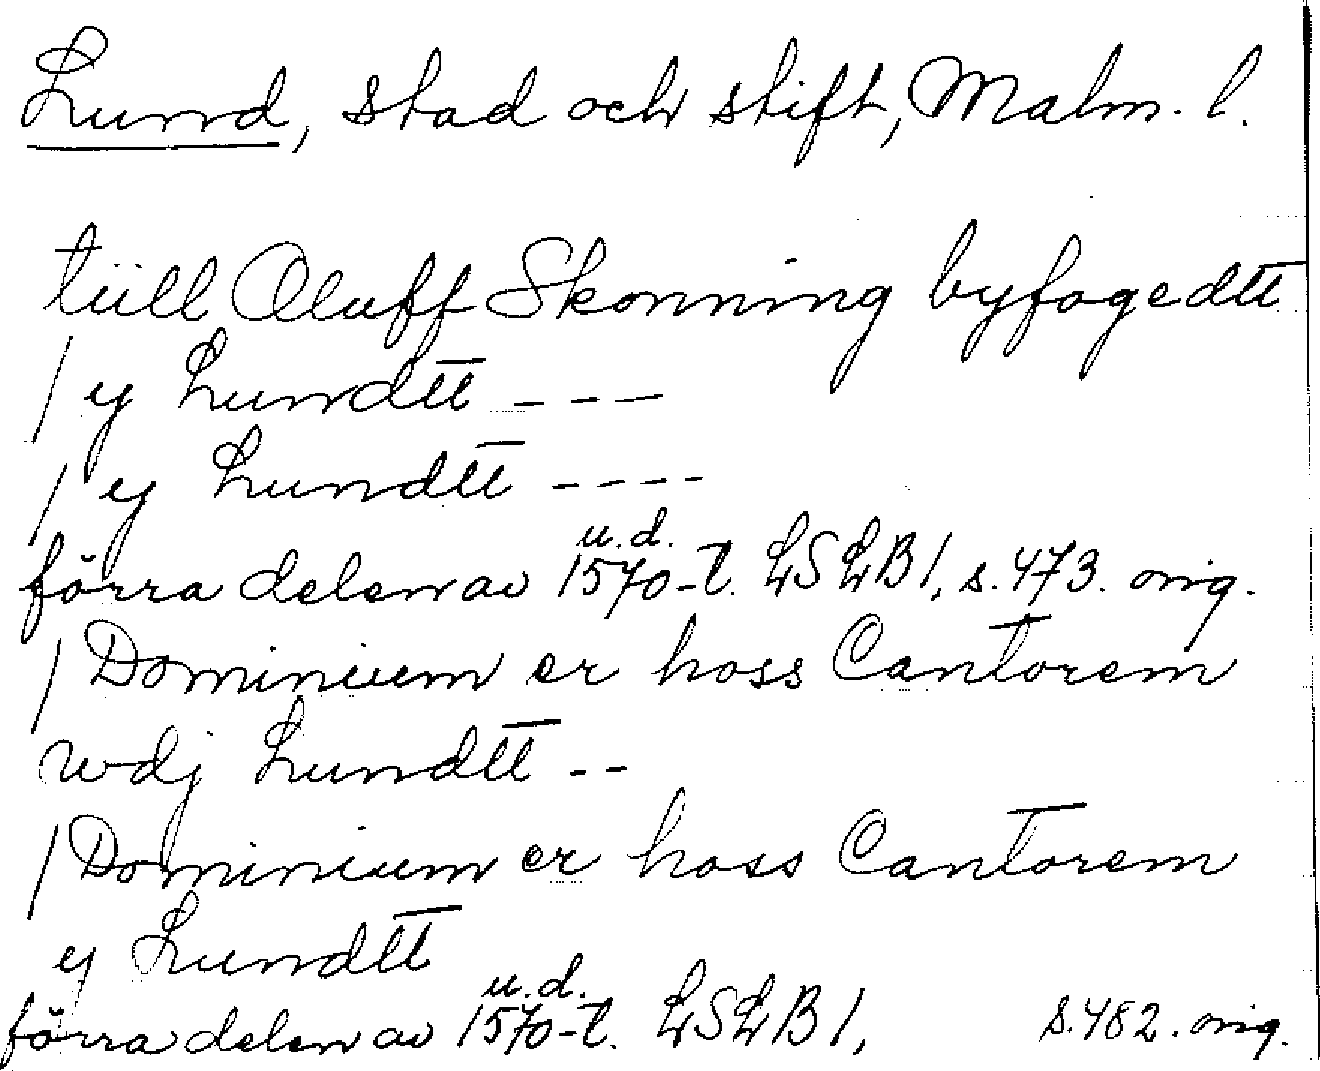 Lund, stad och stift, Malm. l.
tiill Oluff Skonning byfogedtt
/ y Lundtt ---
/ y Lundtt ----
u.d.
förra delen av 1570-t. LSLB 1, s. 473. orig.
/ Dominium er hoss Cantorem
wdj Lundtt --
/ Dominium er hoss Cantorem
y Lundtt
u.d.
förra delen av 1570-t. LSLB 1, s. 482. orig.